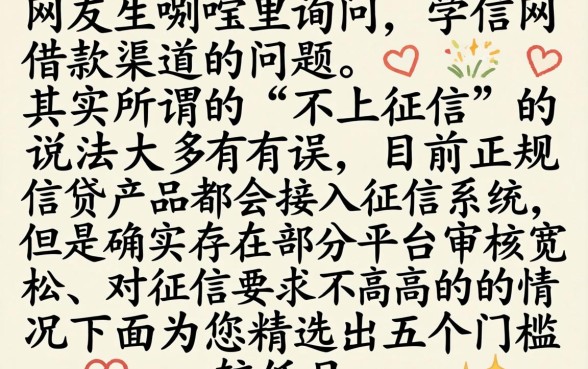 网友生咧哰里询问，学信网
借款渠道的问题。
其实所谓的“不上征信”的
说法大多有有误，目前正规
信贷产品都会接入征信系统，
但是确实存在部分平台审核宽
松、对征信要求不高高的的情
况下面为您精选出五个门槛